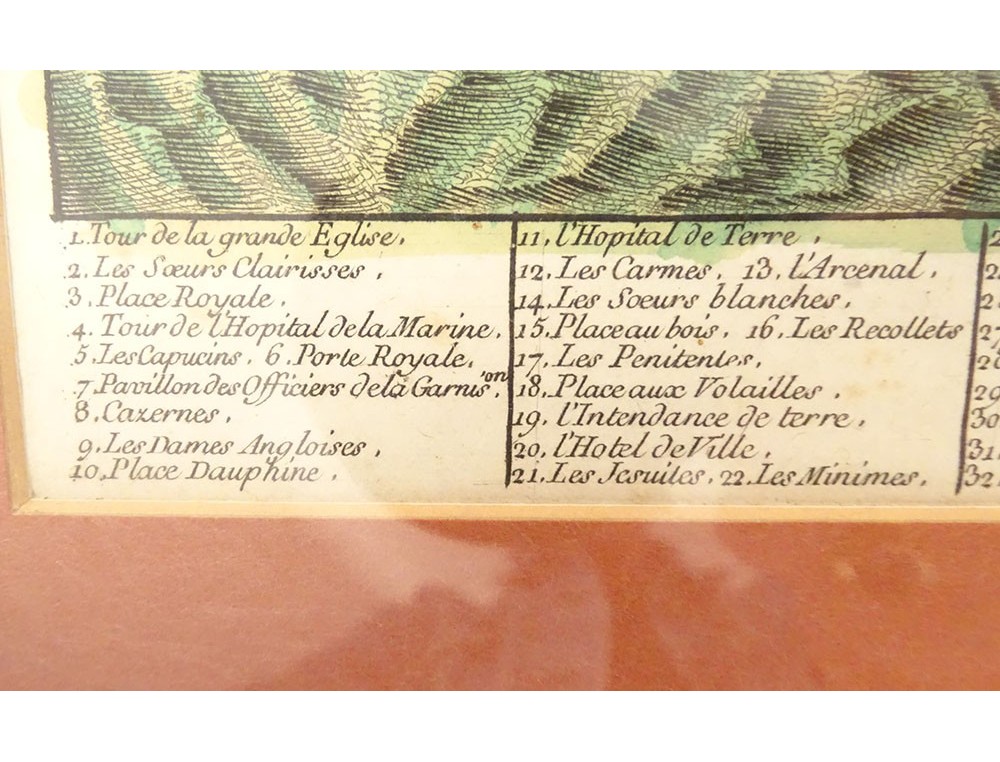 1. Tour de la grande Eglise.
2. Les Sœurs Clairisses.
3. Place Royale.
4. Tour de l'Hopital de la Marine.
5. Les Capucins. 6. Porte Royale.
7. Pavillon des Officiers de la Garnis.on
8. Cazernes.
9. Les Dames Angloises.
10. Place Dauphine.
11. l'Hopital de Terre.
12. Les Carmes. 13. l'Arcenal.
14. Les Soeurs blanches.
15. Place au bois. 16. Les Recollets
17. Les Penitentes.
18. Place aux Volailles.
19. l'Intendance de terre.
20. l'Hotel de Ville.
21. Les Jesuites. 22. Les Minimes.
29
30
31
32